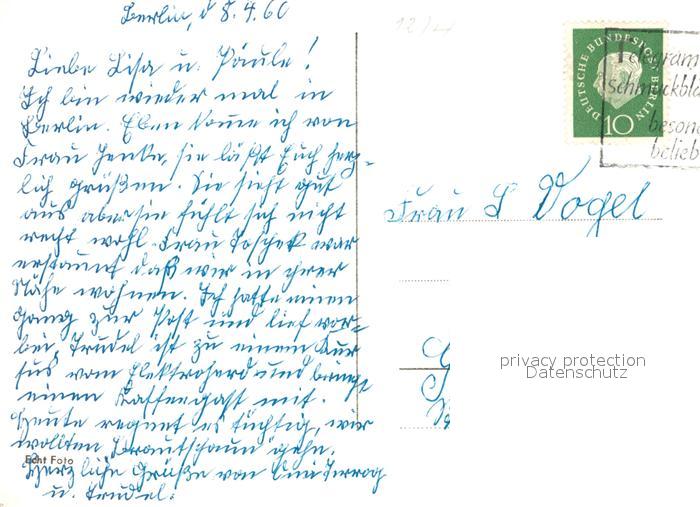 Berlin, d 8.4.60
12/4
Liebe Lisa u. Päule!
Ich bin wieder mal in
Berlin. Eben komme ich von
Frau Henke, sie läßt Euch herz-
lich grüßen. Sie sieht gut
aus aber sie fühlt sich nicht
recht wohl. Frau Toschek war
erstaunt daß wir in ihrer
Nähe wohnen. Ich hatte einen
Gang zur Post und lief vor-
bei. Trudel ist zu einem Kur
sus vom Elektroherd und bringt
einen Kaffeegast mit.
Heute regnet es tüchtig, wir
wollten Brautschaun gehn.
Herzliche Grüße von
u. Trudel.
Echt Foto
DEUTSCHE BUNDESPOST BERLIN
10
Telegram
schmuckbl
beson
belieb
Frau L Vogel
privacy protection
Datenschutz